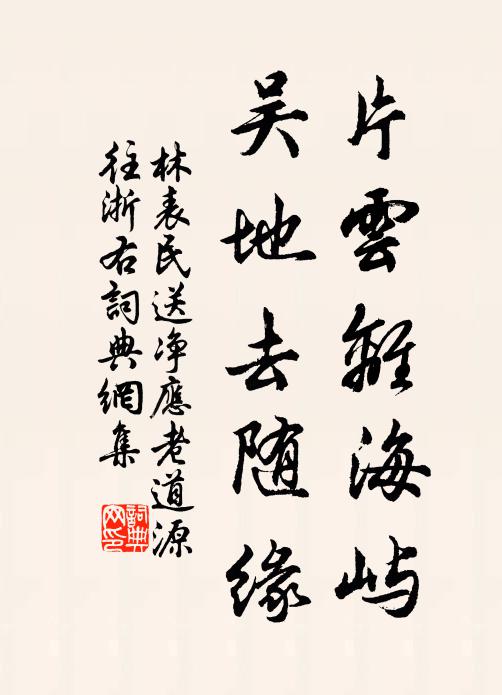 片雲離海嶼
吳地去随緣
林表民送净應老道源
往浙右詞典網集
詞典網印